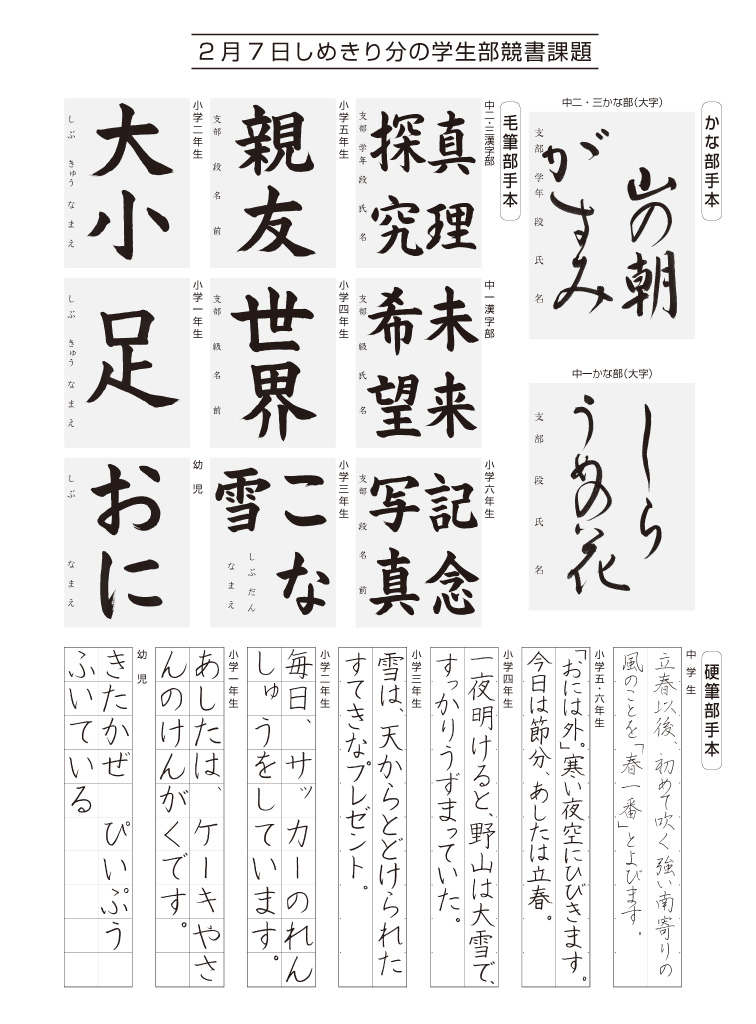 ２月７日しめきり分の学生部競書課題
かな部手本
中二・三かな部（大字）
山の朝
がすみ
支部 学年 段 氏 名
中一かな部（大字）
しら
うめの花
支部 段 氏 名
毛筆部手本
中二・三漢字部
真理
探究
支部 学年 段 氏 名
中一漢字部
未来
希望
支部 級 氏 名
小学六年生
記念
写真
支部 段 名 前
小学五年生
親友
支部 段 名 前
小学四年生
世界
支部 級 名 前
小学三年生
こな
雪
しぶ だん
なまえ
小学二年生
大小
しぶ きゅう なまえ
小学一年生
足
しぶ きゅう なまえ
幼児
おに
しぶ なまえ
硬筆部手本
中学生
立春以後、初めて吹く強い南寄りの
風のことを「春一番」とよびます。
小学五・六年生
「おには外。」寒い夜空にひびきます。
今日は節分、あしたは立春。
小学四年生
一夜明けると、野山は大雪で、
すっかりうずまっていた。
小学三年生
雪は、天からとどけられた
すてきなプレゼント。
小学二年生
毎日、サッカーのれん
しゅうをしています。
小学一年生
あしたは、ケーキやさ
んのけんがくです。
幼児
きたかぜ ぴいぷう
ふいている